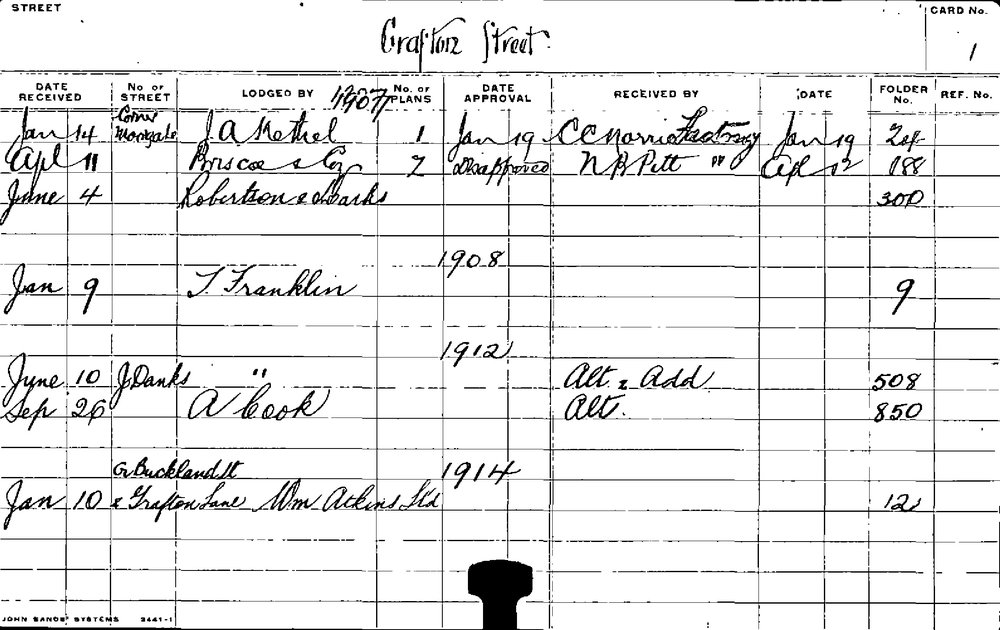 STREET
CARD No.
Grafton Street.
1
DATE RECEIVED No. OF STREET LODGED BY 1907 No. OF PLANS DATE APPROVAL RECEIVED BY DATE FOLDER No. REF. No.
Corner
Jan 14 Moorgate J. A Kethel 1 Jan 19 C C Norris Factory Jan 19 24
Apl 11 Briscoe & Coy 2 Disapproved N B Pitt " Apl 12 188
June 4 Robertson & Marks 300
1908
Jan 9 T. Franklin 9
1912
June 10 J. Danks " Alt. & Add 508
Sep 26 A Cook Alt. 850
Cr Buckland St 1914
Jan 10 & Grafton Lane Wm Atkins Ltd 12
JOHN SANDS' SYSTEMS 2441-1